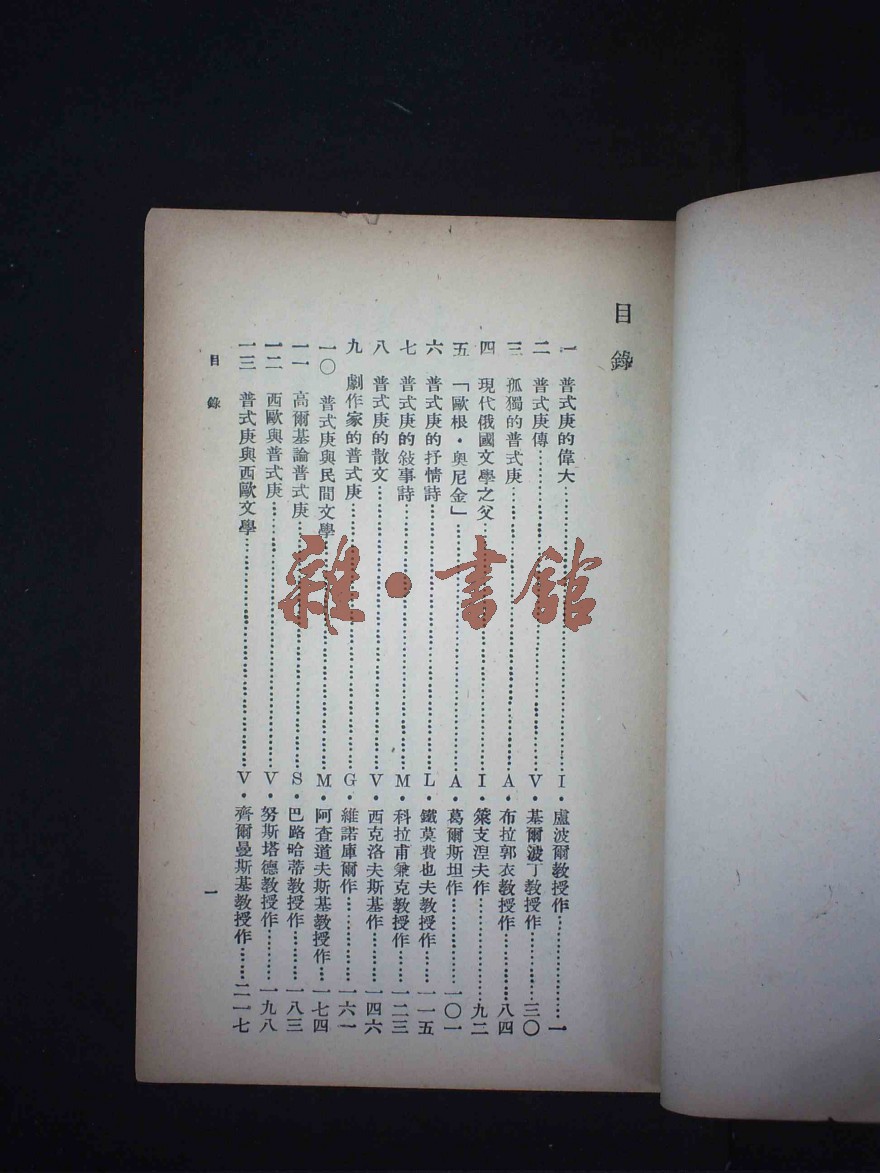 目錄
一 普式庚的偉大……I・盧波爾教授作……一
二 普式庚傳……V・基爾波丁教授作……三〇
三 孤獨的普式庚……A・布拉郭衣教授作……八四
四 現代俄國文學之父……I・築支涅夫作……九二
五 「歐根・奧尼金」……A・葛爾斯坦作……一〇一
六 普式庚的抒情詩……L・鐵莫費也夫教授作……一一五
七 普式庚的敍事詩……M・科拉甫兼克教授作……一二三
八 普式庚的散文……V・西克洛夫斯基作……一四六
九 劇作家的普式庚……G・維諾庫爾作……一六一
一〇 普式庚與民間文學……M・阿查道夫斯基教授作……一七四
一一 高爾基論普式庚……S・巴路哈蒂教授作……一八三
一二 西歐與普式庚……V・努斯塔德教授作……一九八
一三 普式庚與西歐文學……V・齊爾曼斯基教授作……二一七
目錄
一
雜・書館